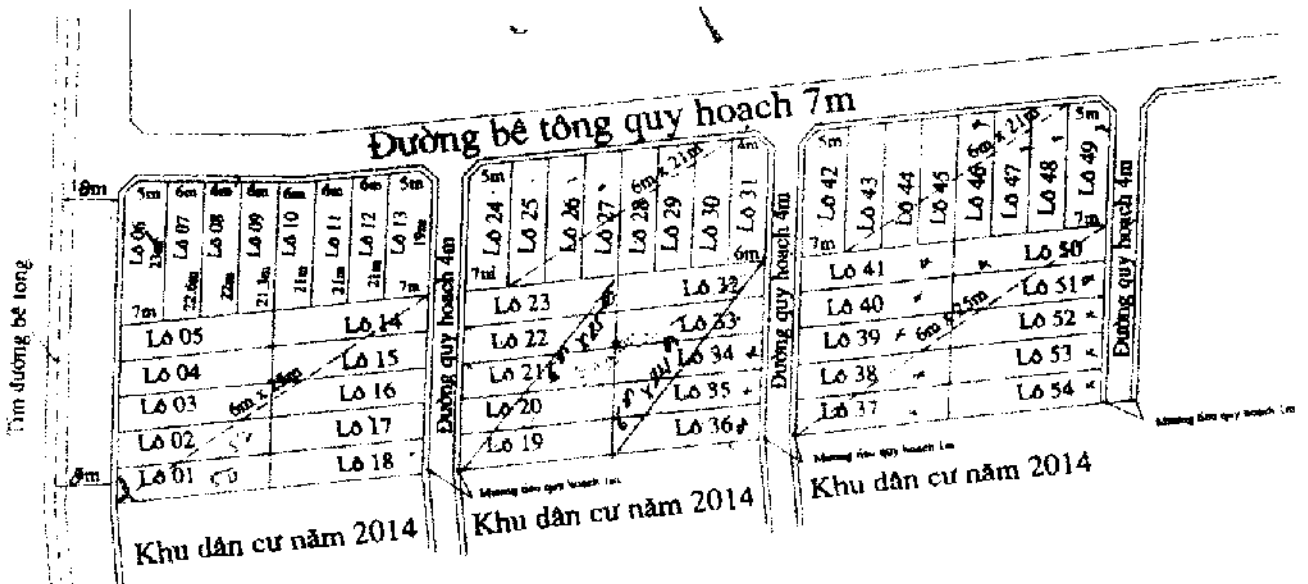 Đường bê tông quy hoạch 7m
9m
5m 6m 6m 6m 6m 6m 6m 5m
Lô 06 Lô 07 Lô 08 Lô 09 Lô 10 Lô 11 Lô 12 Lô 13
23m 22.6m 22m 21.3m 21m 21m 21m 19m
7m 7m
Lô 05 Lô 14
Lô 04 Lô 15
Lô 03 Lô 16
Lô 02 Lô 17
Lô 01 Lô 18
9m
Tim đường bê tông
Đường quy hoạch 4m
5m 6m x 21m 4m
Lô 24 Lô 25 Lô 26 Lô 27 Lô 28 Lô 29 Lô 30 Lô 31
7m 6m
Lô 23 Lô 32
Lô 22 Lô 33
Lô 21 Lô 34
Lô 20 Lô 35
Lô 19 Lô 36
Đường quy hoạch 4m
5m 6m x 21m 5m
Lô 42 Lô 43 Lô 44 Lô 45 Lô 46 Lô 47 Lô 48 Lô 49
7m 7m
Lô 41 Lô 50
Lô 40 Lô 51
Lô 39 6m x 25m Lô 52
Lô 38 Lô 53
Lô 37 Lô 54
Đường quy hoạch 4m
Mương tiêu quy hoạch 1m
Mương tiêu quy hoạch 1m
Mương tiêu quy hoạch 1m
Khu dân cư năm 2014
Khu dân cư năm 2014
Khu dân cư năm 2014